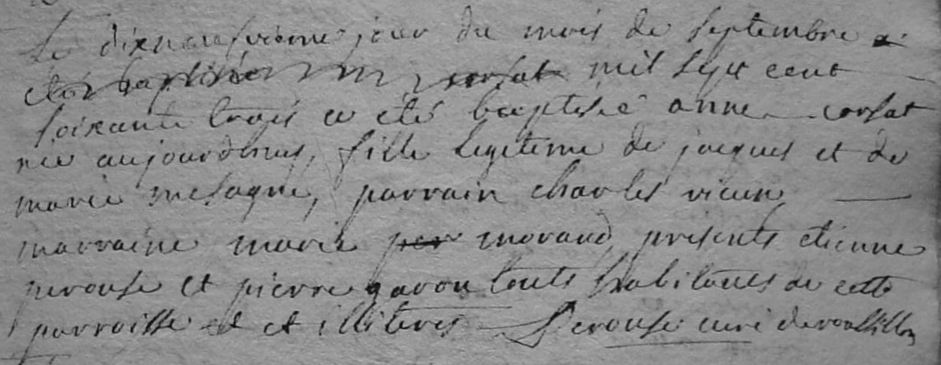 Le dixneufvieme jour du mois de septembre a
eté baptisée corsat mil sept cent
soixante trois a eté baptisée anne corsat
née aujourdhuy, fille legitime de jacques et de
marie mesagne, parrain charles vieux
marraine marie per morand presents etienne
perouse et pierre gavou touts habitants de cette
parroisse et et illiteres Perouse curé de roussillon